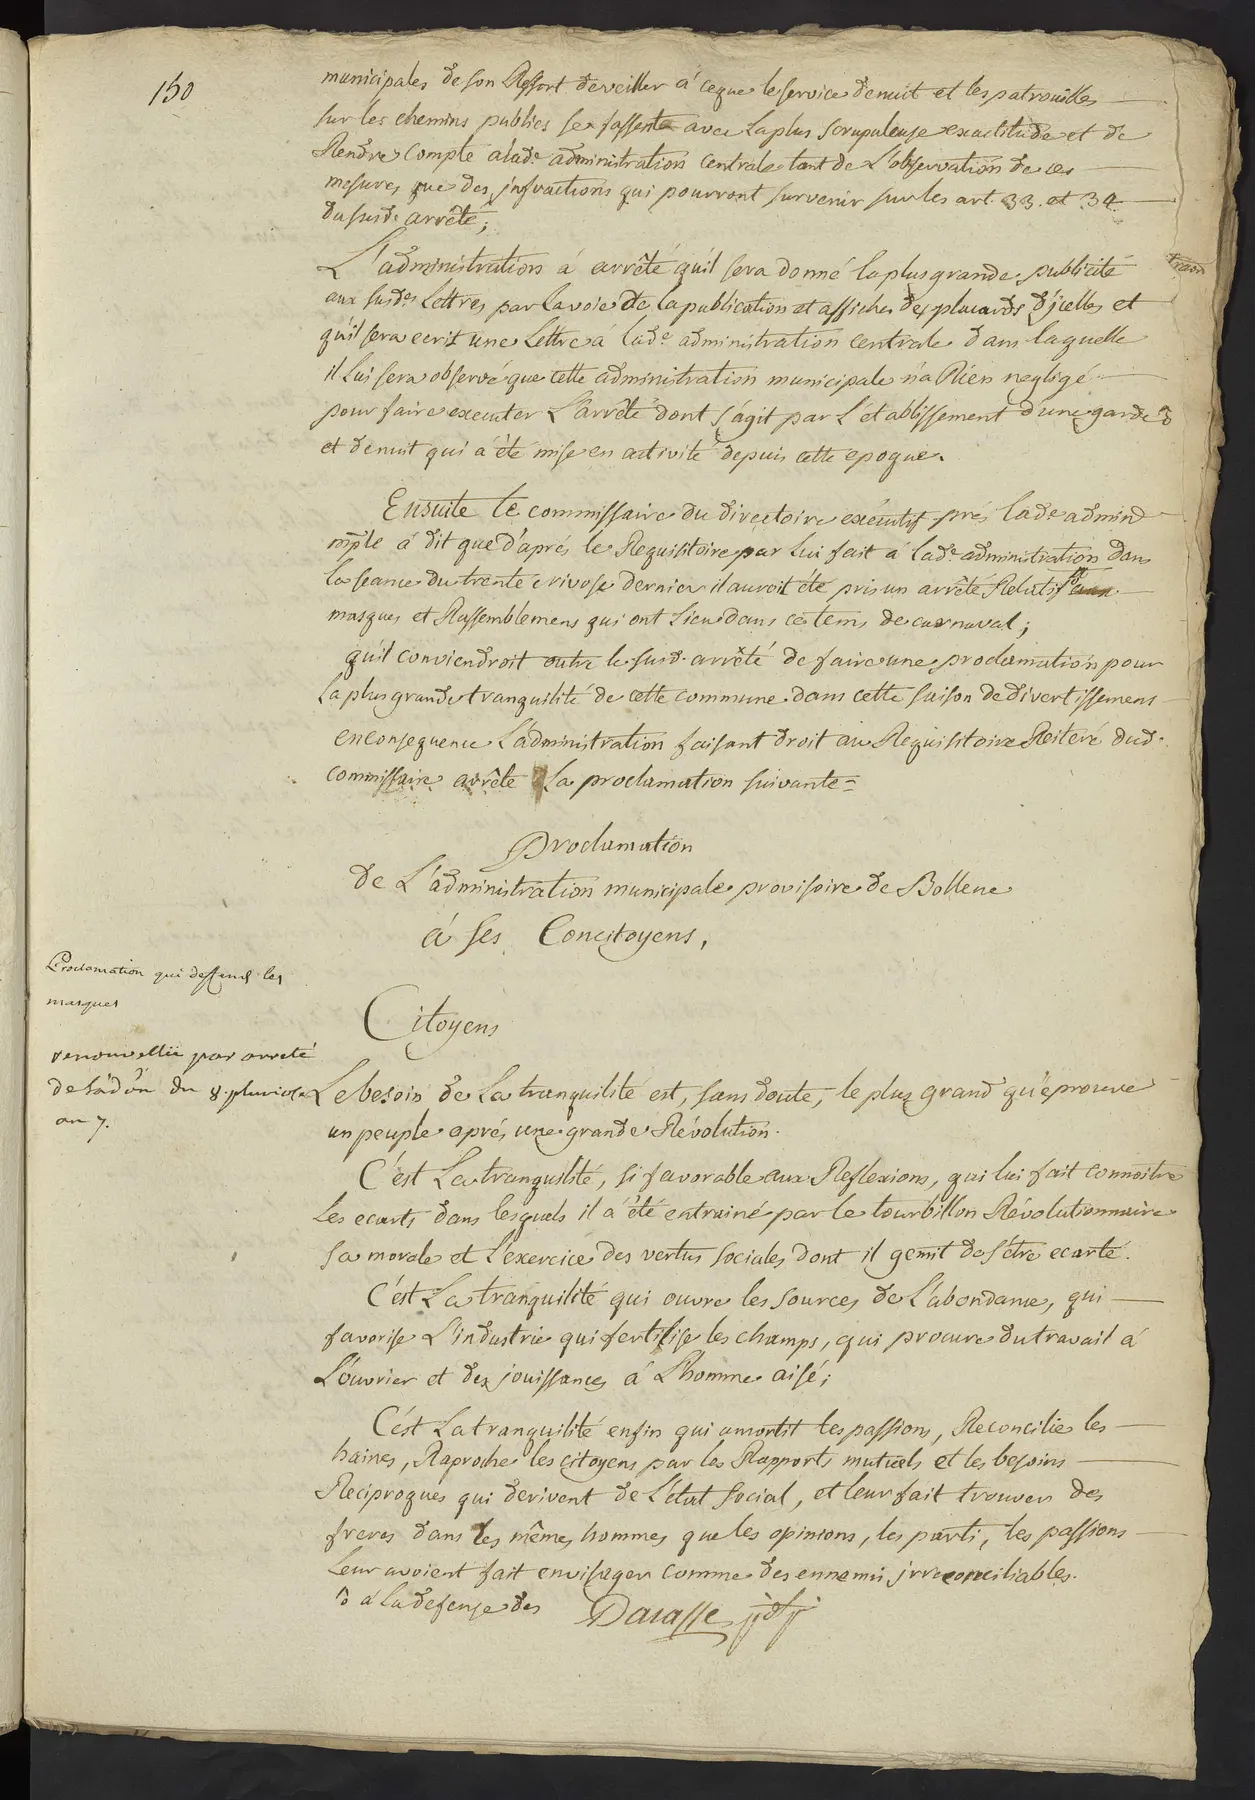 150
municipales de son Ressort de veiller á ceque le service denuit et les patrouilles
sur les chemins publics se fassent avec la plus scrupuleuse exactitude et de
Rendre compte alade administration centrale tant de L'observation de ces
mesures que des infractions qui pourront survenir sur les art. 33. et 34.
du susd. arrêté;
L'administration á arrêté qu'il sera donné la plus grande publicité
aux susdes Lettres par la voie de la publication et affiches des placards d'jcelles et
qu'il sera ecrit une Lettre á lade administration centrale dans laquelle
il Lui sera observé que cette administration municipale n'a Rien negligé
pour faire executer L'arrêté dont s'agit par L'établissement d'une garde
et denuit qui a été mise en activité depuis cette epoque.
Ensuite le commissaire du directoire exécutif prés lade admin
mple á dit que d'aprés le Requisitoire par Lui fait á lade administration dans
la séance du trente nivose dernier il auroit été pris un arrêté Relatif aux
masques et Rassemblemens qui ont Lieu dans ce tems de carnaval;
qu'il conviendroit outre le susd. arrêté de faire une proclamation pour
la plus grande tranquilité de cette commune dans cette saison de divertissemens
enconsequence L'administration faisant droit au Requisitoire Réiteré dud.
commissaire arrête La proclamation suivante =
Proclamation
de L'administration municipale provisoire de Bollene
á ses Concitoyens,
Proclamation qui deffend les
masques
renouvellée par arreté
de l'adon du 8. pluviose
an 7.
Citoyens
Le besoin de La tranquilité est, sans doute, le plus grand qu'éprouve
un peuple aprés une grande Révolution.
C'est La tranquilité, si favorable aux Reflexions, qui lui fait connoitre
Les ecarts dans lesquels il a été entrainé par le tourbillon Révolutionnaire
sa morale et L'exercice des vertus sociales dont il gemit de s'être ecarté.
C'est La tranquilité qui ouvre les sources de L'abondance, qui
favorise L'industrie qui fertilise les champs, qui procure du travail á
L'ouvrier et des jouissances á L'homme aisé;
C'est La tranquilité enfin qui amortit les passions, Reconcilie les
haines, Raproche les citoyens par les Rapports mutuels et les besoins
Reciproques qui derivent de L'état social, et leur fait trouver des
freres dans les mêmes hommes que les opinions, les parti, les passions
Leur avoient fait envisager comme des ennemis jrreconciliables.
á La defense des
Darasse